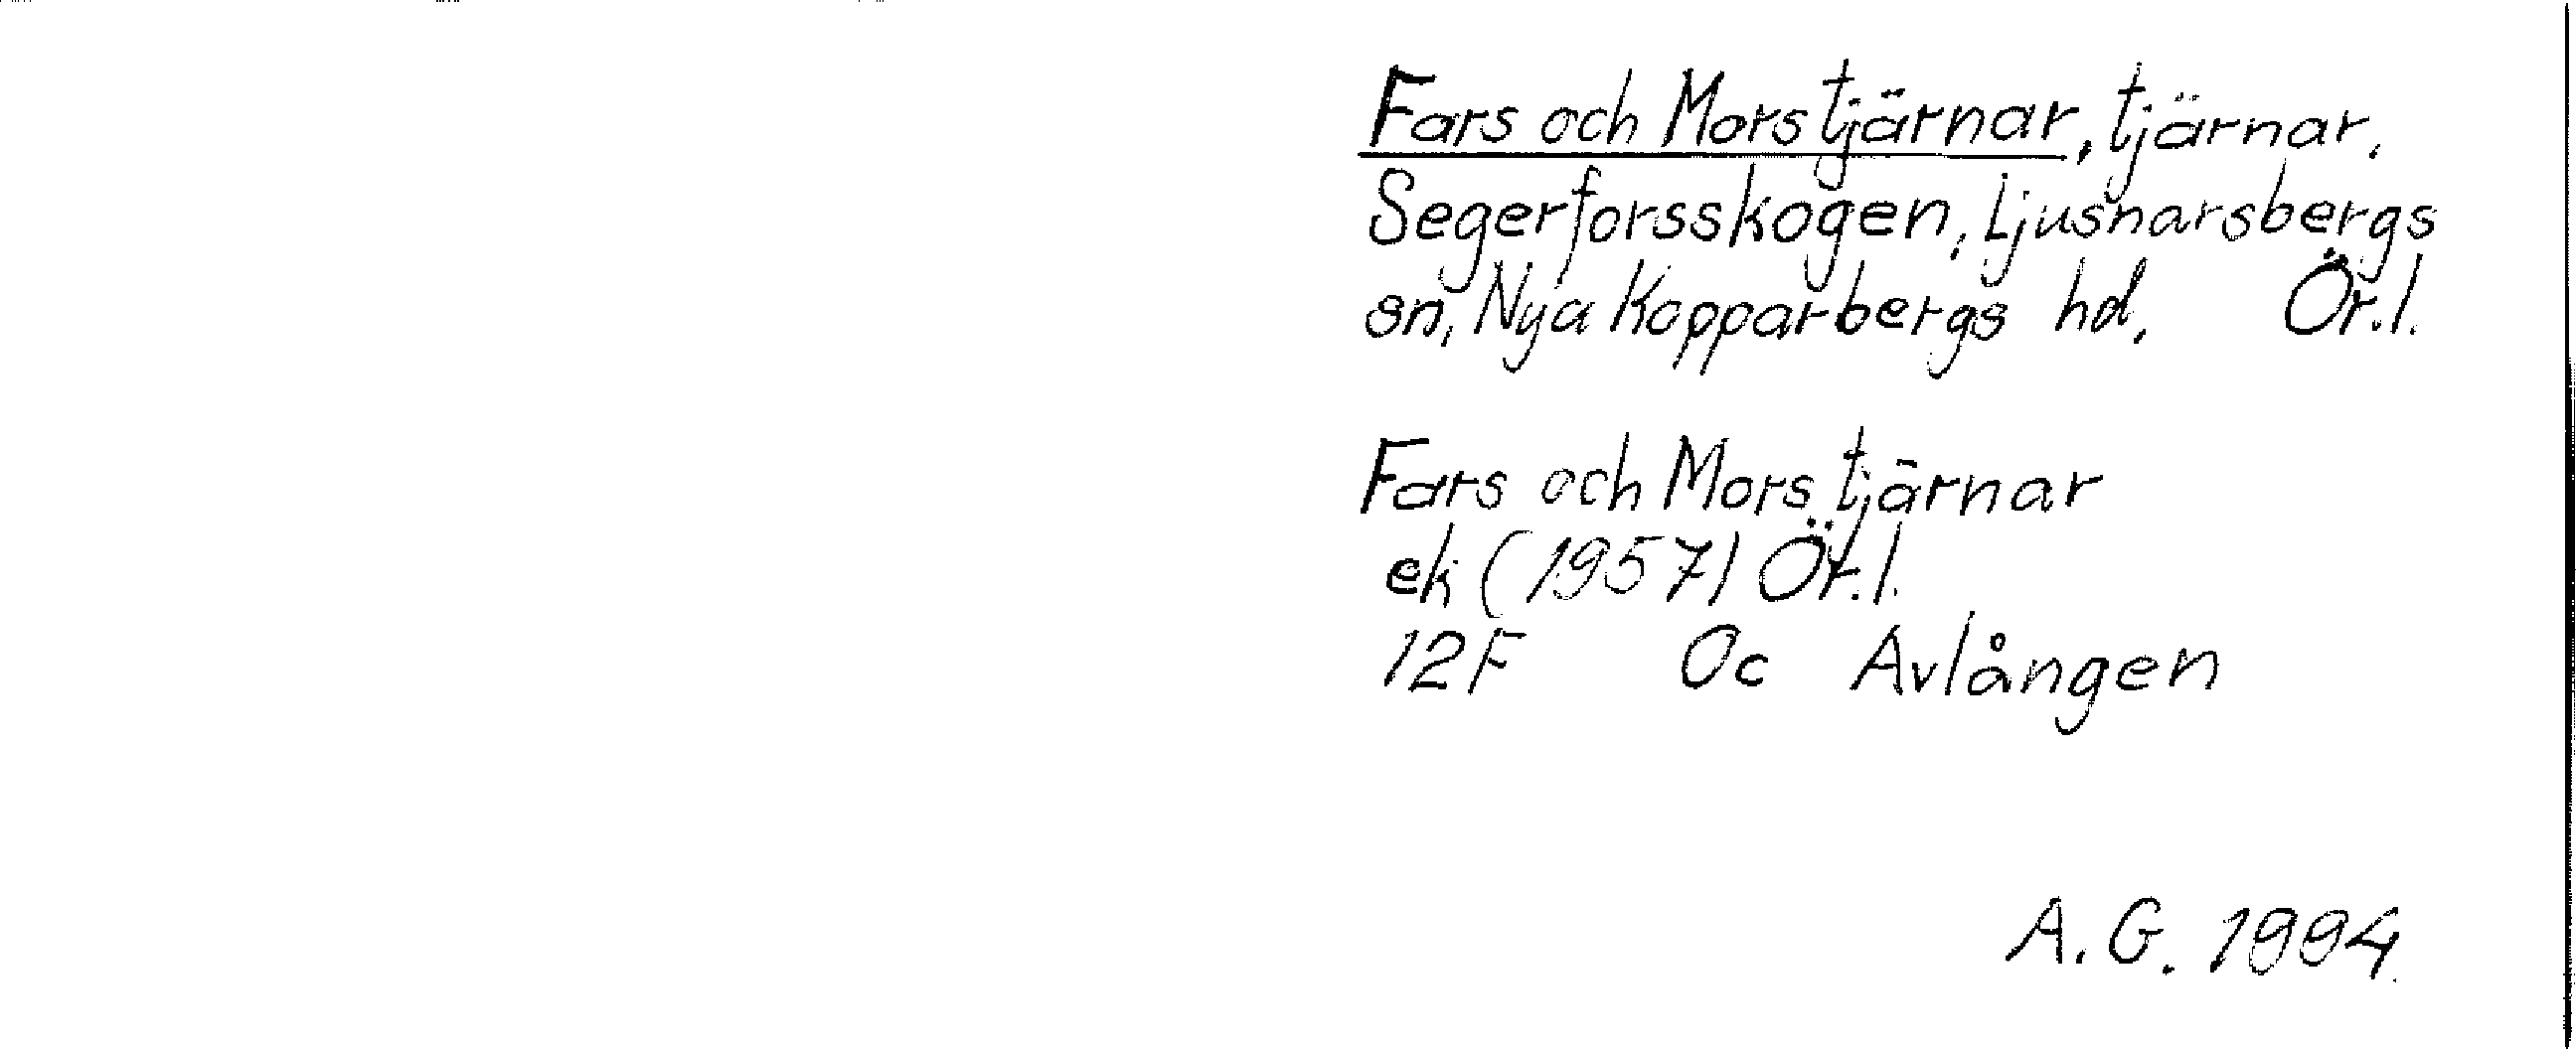 Fars och Mors tjärnar, tjärnar,
Segerforsskogen, Ljusnarsbergs
sn, Nya Kopparbergs hd, Ör.l.
Fars och Mors tjärnar
ek (1957) Ör.l.
12F Oc Avlången
A.G. 1994